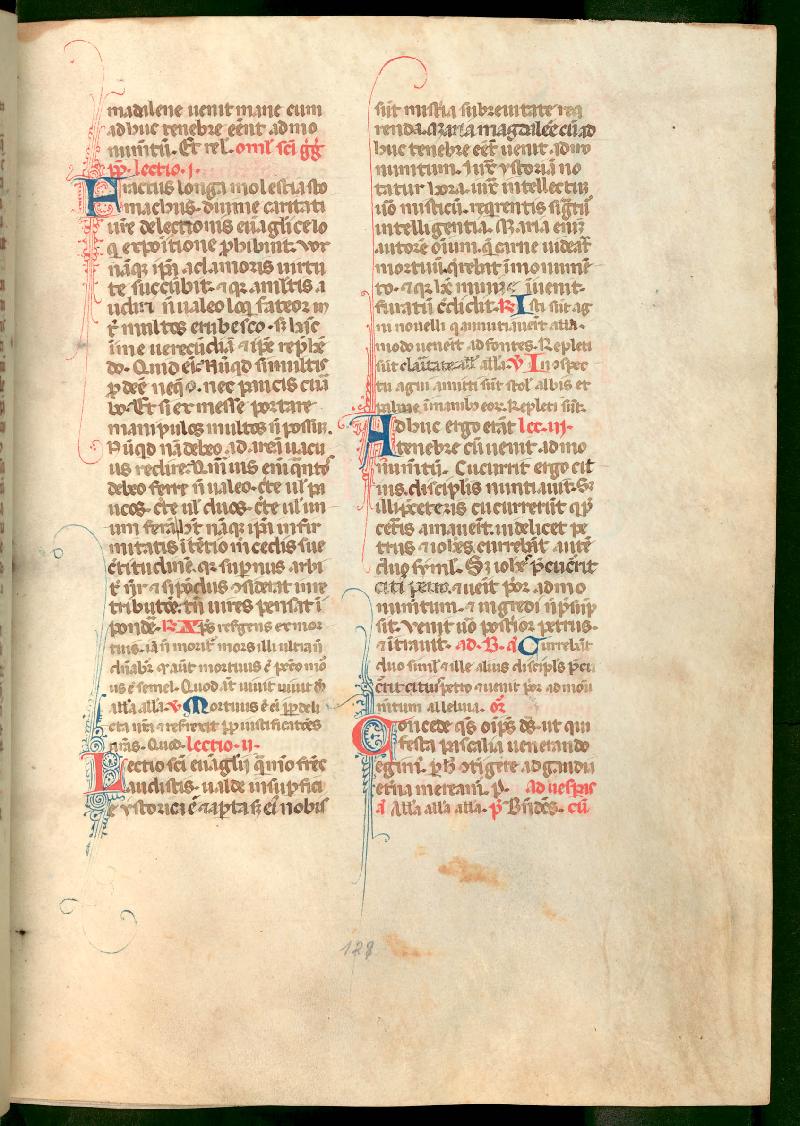 madalene uenit mane cum
adhuc tenebre eent ad mo
numtu. Et rel. omł sci gg
pp. lectio. i.
Fractus longa molestia sto
machus. diu me caritati
ure de lectionis euaglice lo
q expositione phibuit. vox
naq ipa a clamoris uirtu
te succubit. 7 q a mltis a
udiri n ualeo loq fateor in
t multos erubesco. s hac
in me uerecudia 7 ipe rephe
do. Quid ei. Nuqd si multis
p dee neqo. nec paucis cura
bo. Et si ex messe portare
manipulos multos n possu.
Nuqd na debeo ad area uacu
us redire. Quis eni qntos
debeo ferre n ualeo. cte ul pa
ucos. cte ul duos. cte ul un
um fera. ht naq ipa infir
mitatis itetio in cedis sue
certitudine. q supnus arbi
t nr 7 si podus osiderat in re
tribuee. tn uires pensat i
ponde. R Xps resgens ex mor
tuis. ia n morit mors illi ultra n
dnabr q aut mortuus e peto mo
us e semel. Quod at uiuit uiuit do
alla alla. v Mortuus e ei pp deli
cta nra 7 resrexit pp iustificatoes
nras. Quod. lectio. ii.
Lectio sci euaglii qm o frec
audistis. ualde in supfici
e ystorici e aapta. s ei nobis
sut mistia sub reuitate req
renda. Maria magdalee cu ad
huc tenebre eet uenit ad mo
numtum. iux ystoria no
tatur hora. iux intellectu
uo misticu. reqrentis sigtur
intelligentia. Maria eni
autore oium. q carne uideat
mortuu. qrebat i monume
to. 7 q hc minie iuenit.
furatu cdidit. R Isti sut ag
ni nouelli q annutiauert alla.
modo uenert ad fontes. Repleti
sut claritate all alla. v In ospec
tu agni amiti sut stol albis et
palme i manib eor. Repleti sut.
Adhuc ergo erat lec. iii.
tenebre cu uenit ad mo
numtu. Cucurrit ergo cit
ius. disciplis nuntiauit. Sz
illi pceteris cucurrerut qi p
ceteris amauert. uidelicet pe
trus 7 iohes. currebat aute
duo siml. Sz iohes pcucrit
citi petro. 7 uenit por ad mo
numtum. 7 ingredi n psup
sit. Venit uo postior petrus.
7 itrauit. ad. B. a Currebat
duo simł 7 ille alius discipls pcu
crit citius petro 7 uenit por ad mou
mtum alleluia. or
Concede qs oips ds. ut qui
festa pascalia uenerando
egim. p h otigere ad gaudia
etna meream. P. ad uespis
a Alla alla alla. p Bndes. cu
128